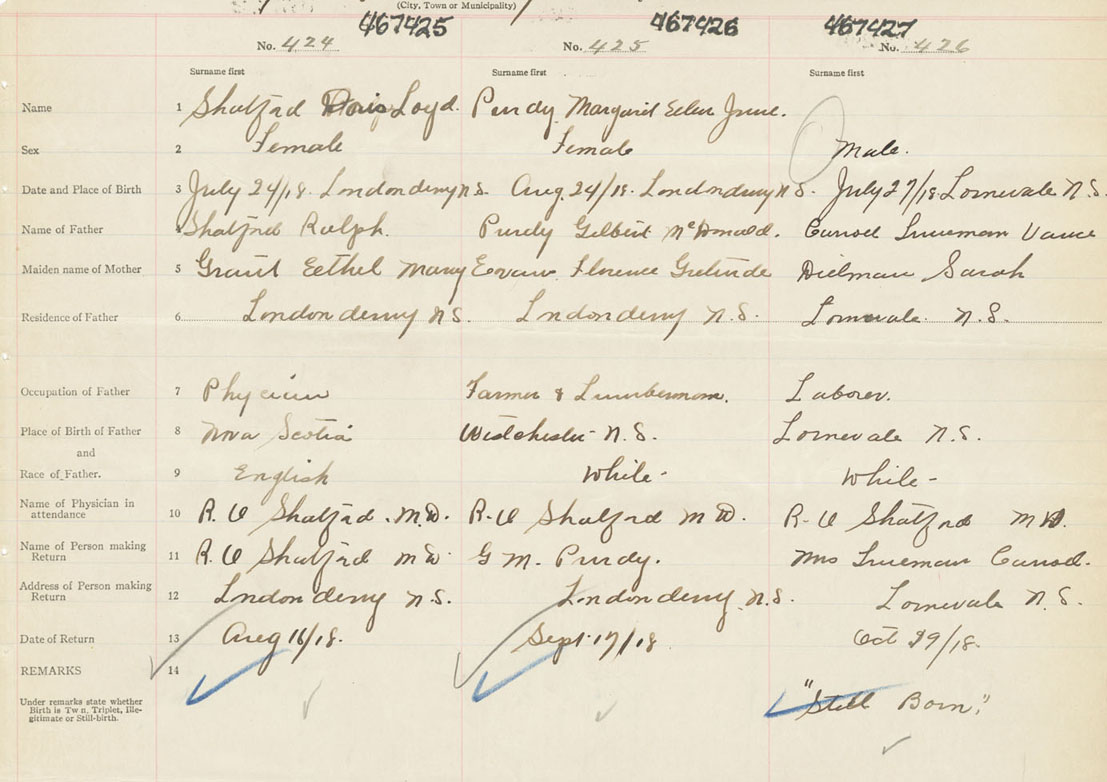 (City, Town or Municipality)
467425 467426 467427
No. 424 No. 425 No. 426
Surname first Surname first Surname first
Name 1 Shatford Doris Loyd. Purdy Margarit Eelen June.
Sex 2 Female Female Male.
Date and Place of Birth 3 July 24/18. Londonderry N.S. Aug. 24/18. Londonderry N.S. July 27/18 Lornevale N.S.
Name of Father 4 Shatford Ralph. Purdy Gilbert McDonald. Trueman Vance
Maiden name of Mother 5 Grant Eethel Mary Florence Sarah
Residence of Father 6 Londonderry N.S. Londonderry N.S. Lornevale. N.S.
Occupation of Father 7 Farmer & Lumberman. Laborer.
Place of Birth of Father 8 Nova Scotia Westchester N.S. Lornevale N.S.
and
Race of Father. 9 English White - White -
Name of Physician in
attendance 10 R. Shatford. M.D. Shatford M.D. Shatford M.D.
Name of Person making
Return 11 R. Shatford M.D. G M. Purdy. Mrs Trueman
Address of Person making
Return 12 Londonderry N.S. Londonderry N.S. Lornevale N.S.
Date of Return 13 Aug 16/18. Sept 17/18 Oct 29/18.
REMARKS 14
Under remarks state whether
Birth is Twin, Triplet, Ille-
gitimate or Still-birth.
"Still Born."